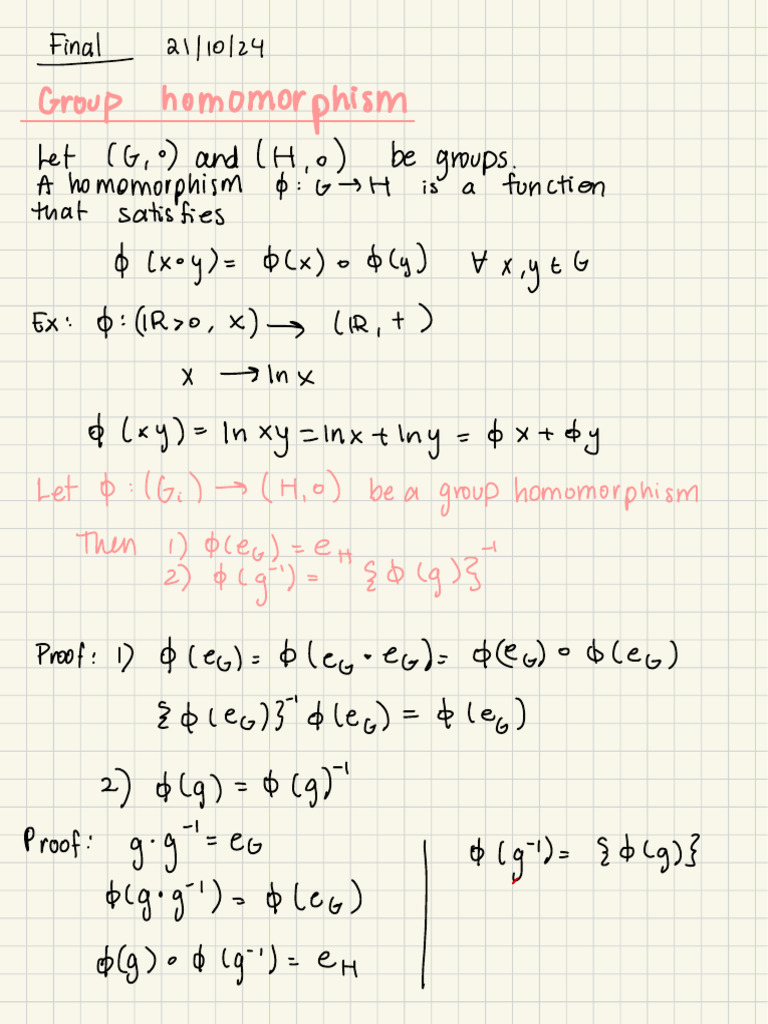 Final 21/10/24
Group homomorphism
Let (G,∘) and (H,∘) be groups.
A homomorphism ϕ: G→H is a function
that satisfies
ϕ (x∘y)= ϕ(x) ∘ ϕ(y) ∀ x,y ∈ G
Ex: ϕ:(ℝ>0, x) → (ℝ, +)
x → ln x
ϕ (xy) = ln xy = ln x + ln y = ϕ x + ϕ y
Let ϕ :(G,) → (H,∘) be a group homomorphism
Then 1) ϕ(e_G) = e_H
2) ϕ(g⁻¹) = {ϕ(g)}⁻¹
Proof: 1) ϕ(e_G) = ϕ(e_G · e_G) = ϕ(e_G) ∘ ϕ(e_G)
{ϕ(e_G)}⁻¹ ϕ(e_G) = ϕ(e_G)
2) ϕ(g) = ϕ(g)⁻¹
Proof: g·g⁻¹ = e_G
ϕ(g·g⁻¹) = ϕ(e_G)
ϕ(g) ∘ ϕ(g⁻¹) = e_H
ϕ(g⁻¹) = {ϕ(g)}